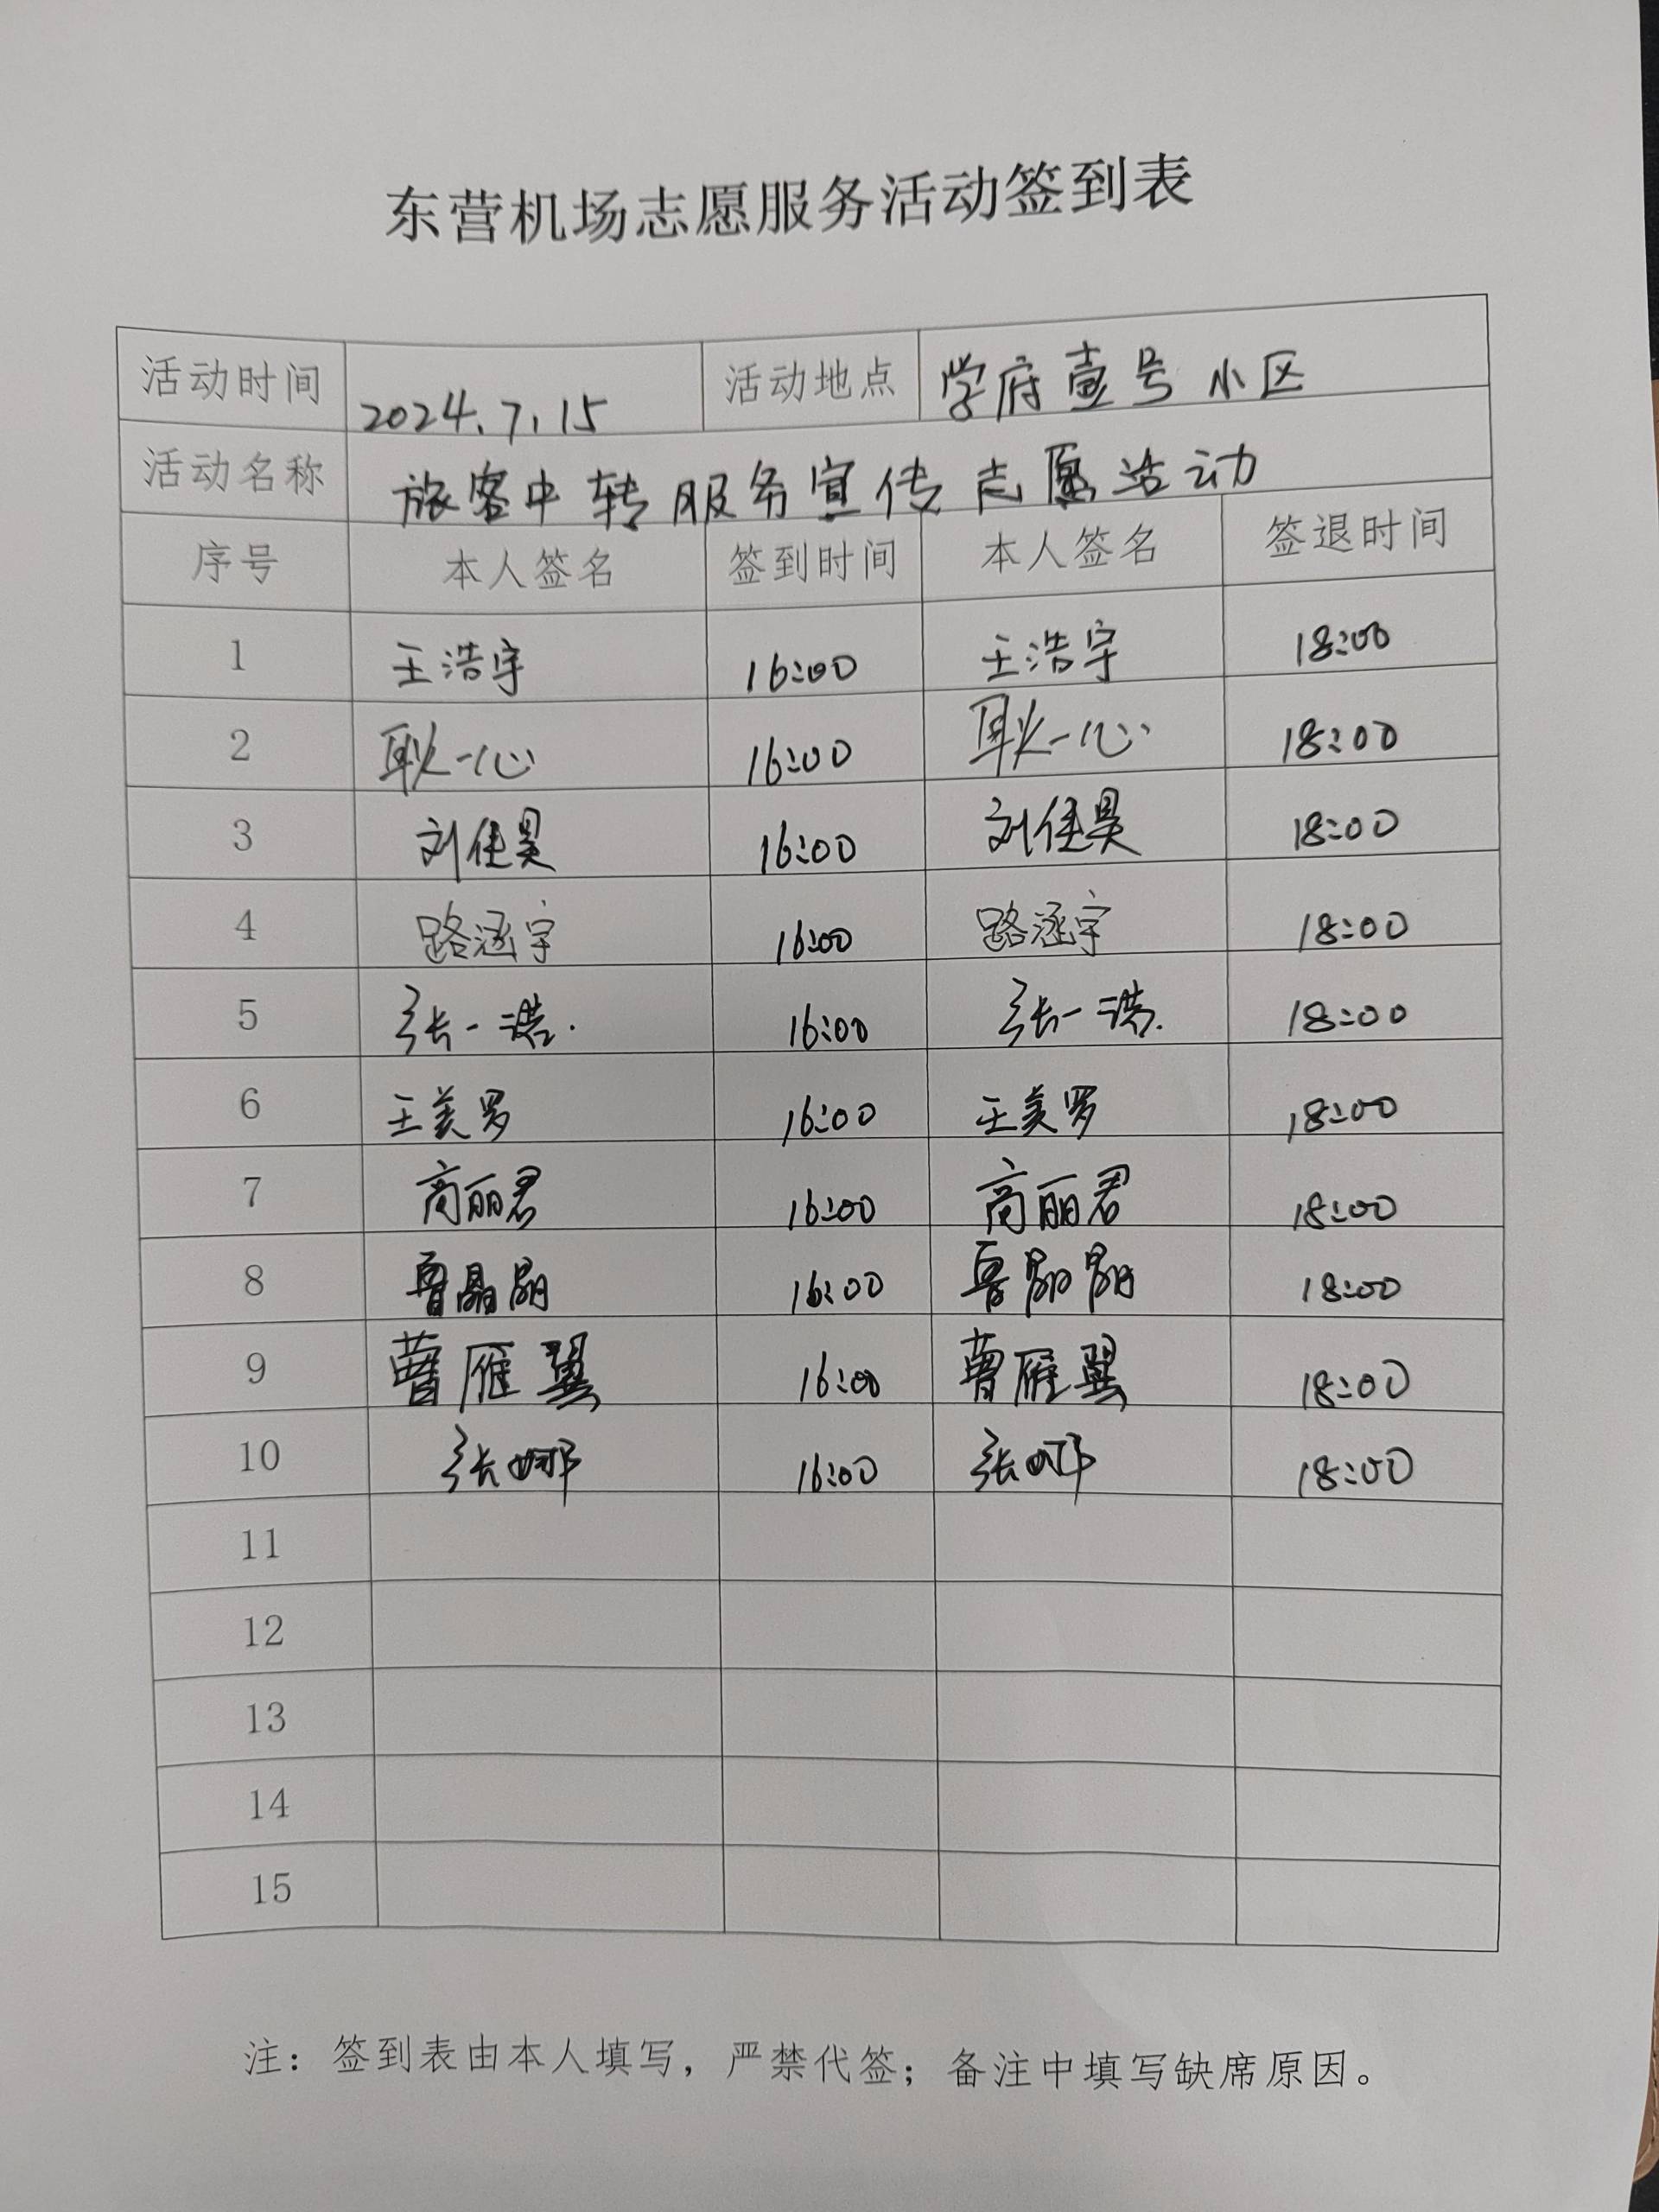 东营机场志愿服务活动签到表
活动时间 2024.7.15 活动地点 学府壹号小区
活动名称 旅客中转服务宣传志愿活动
序号 本人签名 签到时间 本人签名 签退时间
1 王浩宇 16:00 王浩宇 18:00
2 耿一心 16:00 耿一心 18:00
3 刘佳昊 16:00 刘佳昊 18:00
4 路涵宇 16:00 路涵宇 18:00
5 张一浩 16:00 张一浩 18:00
6 王美罗 16:00 王美罗 18:00
7 高丽君 16:00 高丽君 18:00
8 16:00 18:00
9 曹雁翼 16:00 曹雁翼 18:00
10 张娜 16:00 张娜 18:00
11
12
13
14
15
注：签到表由本人填写，严禁代签；备注中填写缺席原因。